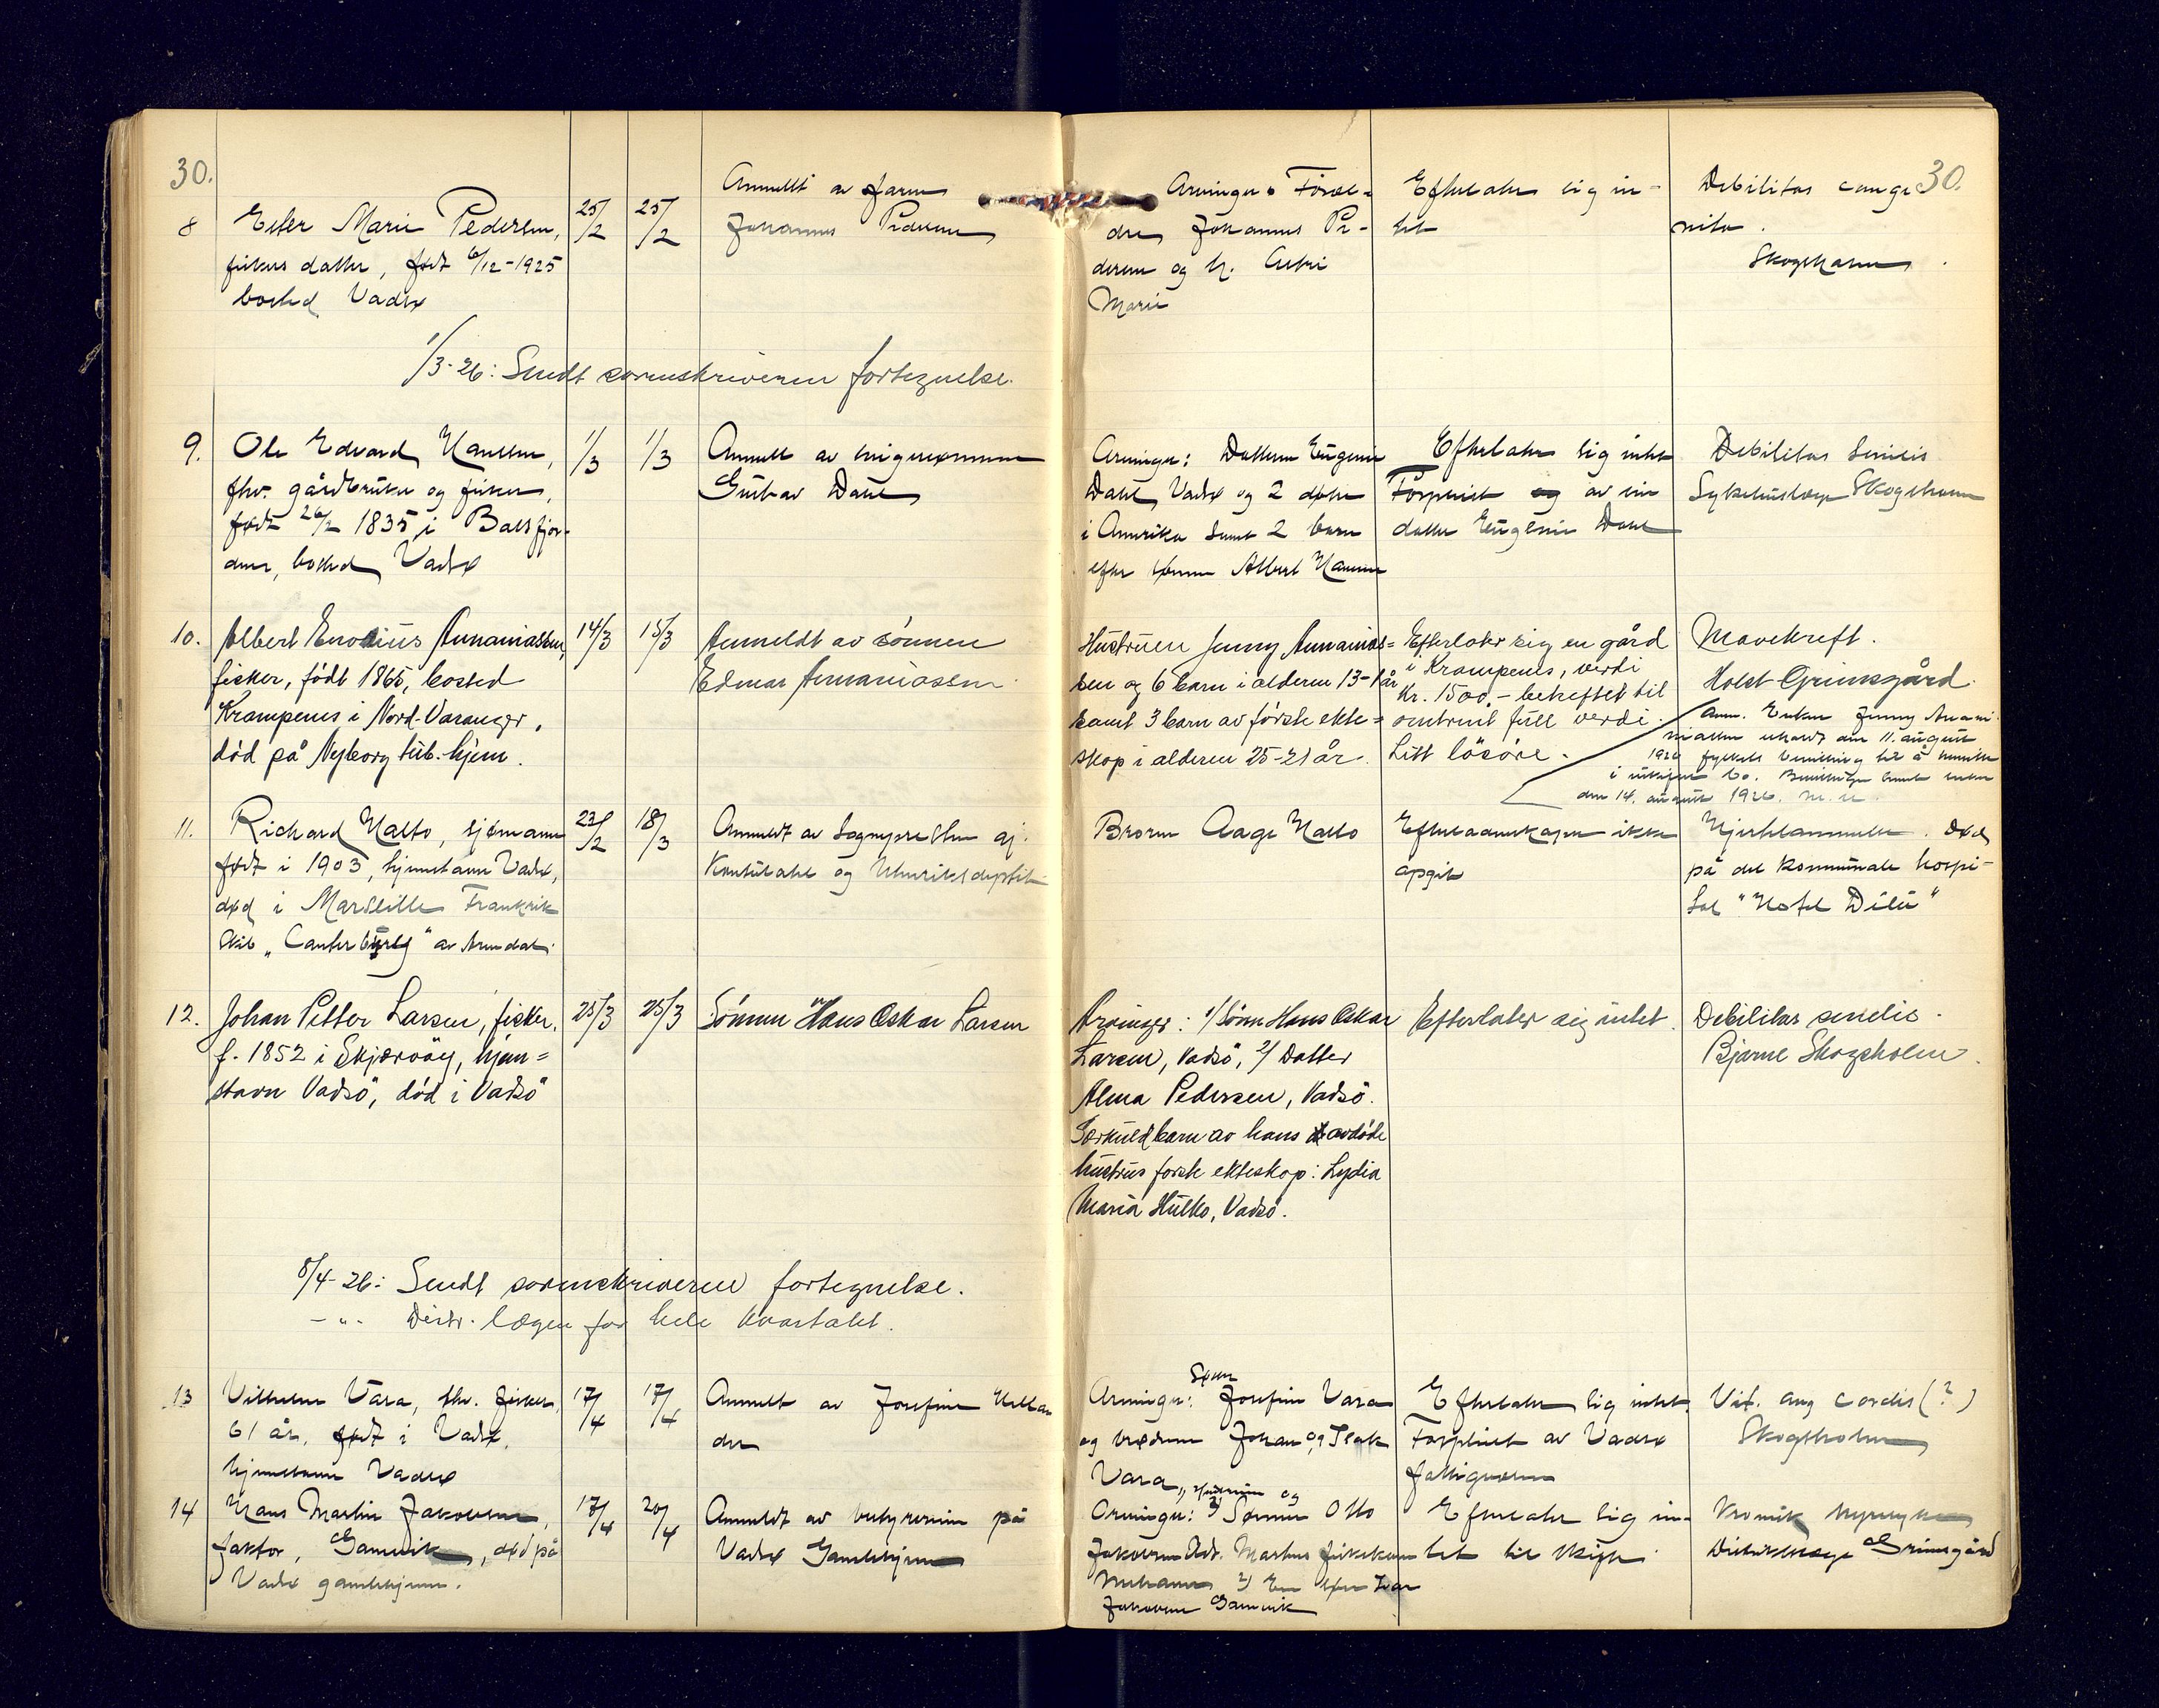 30.
30.
8 Ester Marie Pedersen, 25/2 25/2 Anmeldt av faren Arvinger: Foræl= Efterlater sig in- Debilitas conge-
fiskers datter, født 6/12-1925 Johannes Pedersen dre Johannes Pe- tet nita.
bosted Vadsø dersen og h. Skogsholm.
Marie
1/3-26: Sendt sorenskriveren fortegnelse.
9. Ole Edvard Hansen, 1/3 1/3 Anmeldt av Arvinger: Datteren Eugenie Efterlater sig intet Debilitas senilis
fhv. gårdbruker og fisker, Gustav Dahl Dahl, Vadsø og 2 døtre Forpleiet og av sin Sykehuslæge Skogsholm
født 26/2 1835 i Balsfjor- i Amerika samt 2 barn datter Eugenie Dahl
den, bosted Vadsø efter sønnen Albert Hansen
10. Albert Enovius Annaniassen, 14/3 15/3 Anmeldt av sønnen Hustruen Jenny Annanias= Efterlater sig en gård Mavekreft.
fisker, født 1865, bosted Edmar Annaniassen. sen og 6 barn i alderen 13-1 år i Krampenes, verdi Holst Grimsgård.
Krampenes i Nord-Varanger, samt 3 barn av første ekte= Kr. 1500.- beheftet til
død på Nyborg tub.-hjem. skap i alderen 25-21 år. omtrent full verdi.
Litt løsøre.
Anm. Enken Jenny Anani-
assen den 11. august
1926 fylkets bevilling til å
i uskiftet bo.
den 14. august 1926.
11. Richard Halto, sjømann 23/2 18/3 Anmeldt av Sognepresten Broren Aage Halto Efterladenskaper ikke død
født i 1903, hjemstavn Vadsø, Konsulatet og opgit på det kommunale hospi-
død i Marseille Frankrik tal "Hotel Dieu"
Skib „Canterbury" av Arendal.
12. Johan Petter Larsen, fisker, 25/3 25/3 Sønnen Hans Oskar Larsen Arvinger: 1/ Sønn Hans Oskar Efterlater sig intet. Debilitas senilis.
f. 1852 i Skjærvøy, hjem= Larsen, Vadsø, 2/ Datter Bjarne Skogsholm.
stavn Vadsø, død i Vadsø Alma Pedersen, Vadsø.
Særkuldbarn av hans avdøde
hustrus første ekteskap: Lydia
Maria Hulko, Vadsø.
8/4-26: Sendt sorenskriveren fortegnelse.
-"- Distr. lægen for hele kvartalet.
13 Vilhelm Vara, fhv. fisker, 17/4 17/4 Anmeldt av Josefine Arvinger: Søster Josefine Vara Efterlater sig intet. Vit. org cordis (?)
61 år, født i Vadsø, og brødrene Johan og Isak Forpleiet av Vadsø Skogsholm
hjemstavn Vadsø Vara fattigvesen
14 Hans Martin Jakobsen, 17/4 20/4 Anmeldt av bestyrerinne på Arvinger: Sønnen Otto Efterlater sig in- Kronisk
faktor, Gamvik, død på Vadsø Gamlehjem Jakobsen tet til skifte. Distriktslæge Grimsgård
Vadsø gamlehjem. Mehavn 2) En søn
Jakobsen Gamvik